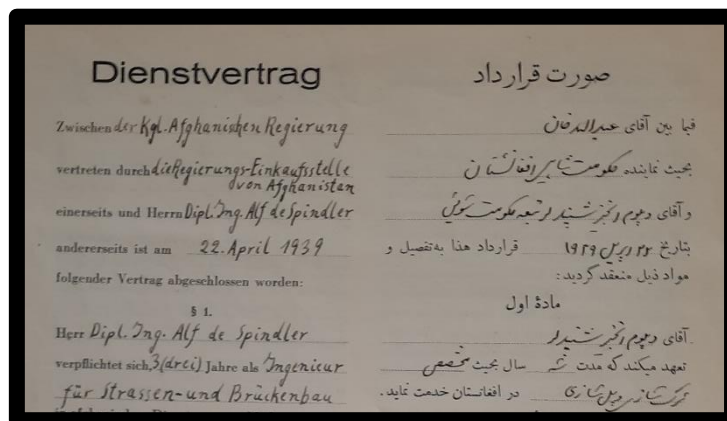 Dienstvertrag
Zwischen der Kgl. Afghanischen Regierung
vertreten durch die Regierungs-Einkaufsstelle
von Afghanistan
einerseits und Herrn Dipl. Ing. Alf de Spindler
andererseits ist am 22. April 1939
folgender Vertrag abgeschlossen worden:
§ 1.
Herr Dipl. Ing. Alf de Spindler
verpflichtet sich, 3 (drei) Jahre als Ingenieur
für Strassen- und Brückenbau
صورت قرارداد
فیما بین آقای عبدالله خان
بحیث نماینده حکومت شاهی افغانستان
و آقای دیپلوم انجنیر شپندلر تبعه حکومت
بتاریخ ۲۲ اپریل ۱۹۳۹ قرارداد هذا به‌تفصیل و
مواد ذیل منعقد گردید:
مادهٔ اول
آقای دیپلوم انجنیر شپندلر
تعهد میکند که مدت سه سال بحیث متخصص
در افغانستان خدمت نماید.